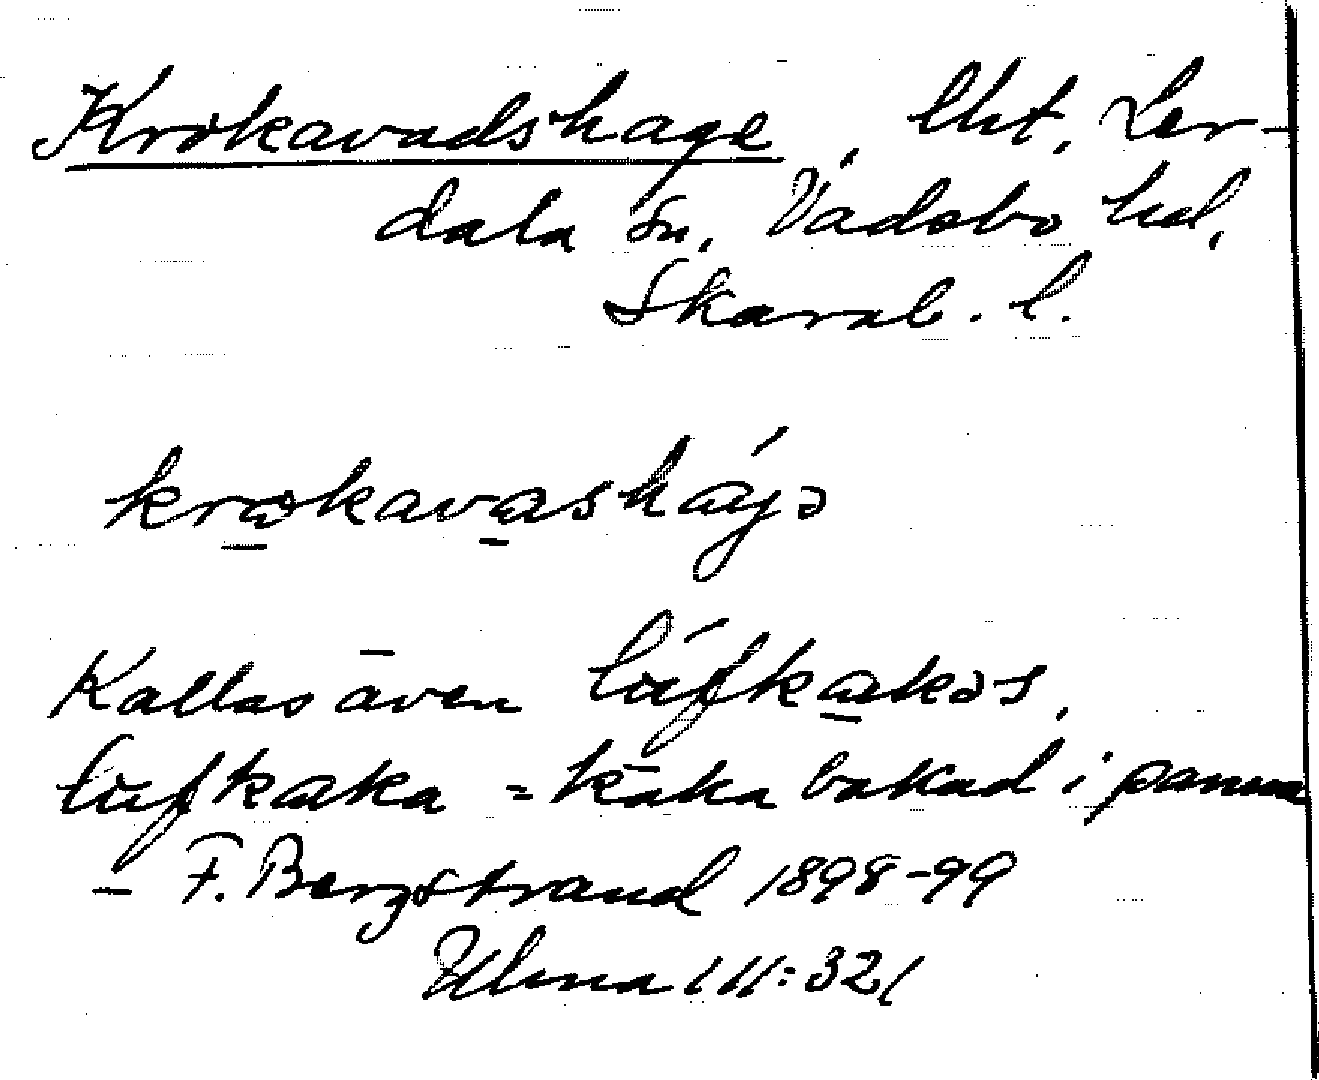 Krokavadshage, lht, Ler-
dala sn, Vadsbo hd,
Skarab. l.
krokavashájə
Kallas även lúfkakəs,
lufkaka = kaka bakad i panna
– F. Bergstrand 1898-99
Ulma 111:321